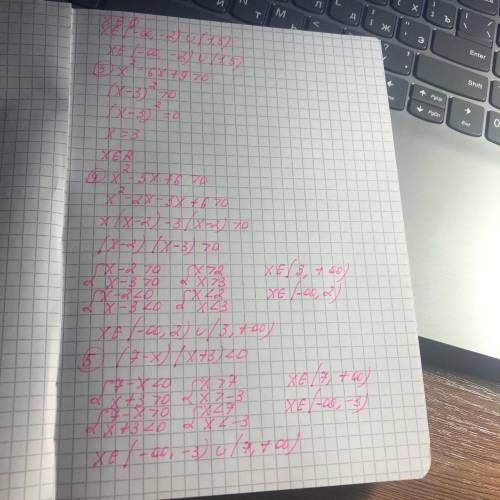 x∈R
x∈(-∞, -2)∪(1,5)
x∈(-∞, -2)∪(1,5)
③ x²-6x+9>0
(x-3)²>0
(x-3)²=0
x=3
x∈R
④ x²-5x+6>0
x²-2x-3x+6>0
x(x-2)-3(x-2)>0
(x-2)(x-3)>0
{x-2>0 {x>2 x∈(3, +∞)
{x-3>0 {x>3
{x-2<0 {x<2 x∈(-∞, 2)
{x-3<0 {x<3
x∈(-∞, 2)∪(3, +∞)
⑤ (7-x)(x+3)<0
{7-x<0 {x>7 x∈(7, +∞)
{x+3>0 {x>-3
{7-x>0 {x<7 x∈(-∞, -3)
{x+3<0 {x<-3
x∈(-∞, -3)∪(7, +∞)